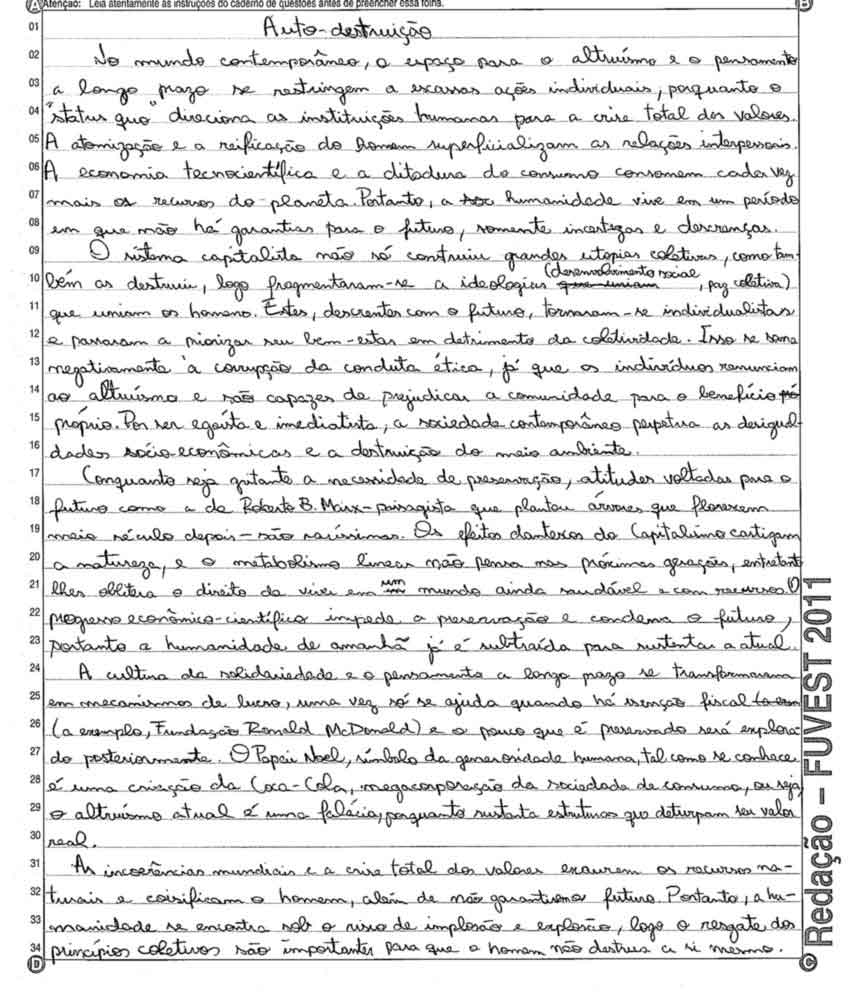 Atenção: Leia atentamente as instruções do caderno de questões antes de preencher essa folha.
01 Auto-destruição
02 No mundo contemporâneo, o espaço para o altruísmo e o pensamento
03 a longo prazo se restringem a escassas ações individuais, porquanto o
04 "status quo" direciona as instituições humanas para a crise total dos valores.
05 A atomização e a reificação do homem superficializam as relações interpessoais.
06 A economia tecnocientífica e a ditadura do consumo consomem cada vez
07 mais os recursos do planeta. Portanto, a humanidade vive em um período
08 em que não há garantias para o futuro, somente incertezas e descrenças.
09 O sistema capitalista não só construiu grandes utopias coletivas, como tam-
10 bém as destruiu, logo fragmentaram-se a ideologias (desenvolvimento social, paz coletiva)
11 que uniam os homens. Estes, descrentes com o futuro, tornaram-se individualistas
12 e passaram a priorizar seu bem-estar em detrimento da coletividade. Isso se soma
13 negativamente à corrupção da conduta ética, já que os indivíduos renunciam
14 ao altruísmo e são capazes de prejudicar a comunidade para o benefício pró
15 próprio. Por ser egoísta e imediatista, a sociedade contemporânea perpetua as desigual-
16 dades sócio-econômicas e a destruição do meio ambiente.
17 Conquanto seja gritante a necessidade de preservação, atitudes voltadas para o
18 futuro como a de Roberto B. Marx - paisagista que plantou árvores que florescem
19 meio século depois - são raríssimas. Os efeitos dantescos do Capitalismo castigam
20 a natureza, e o metabolismo linear não pensa nas próximas gerações, entretanto
21 lhes oblitera o direito de viver em um mundo ainda saudável e com recursos. O
22 progresso econômico-científico impede a preservação e condena o futuro,
23 portanto a humanidade de amanhã já é subtraída para sustentar a atual.
24 A cultura da solidariedade e o pensamento a longo prazo se transformaram
25 em mecanismos de lucro, uma vez só se ajuda quando há isenção fiscal
26 (a exemplo, Fundação Ronald McDonald) e o pouco que é preservado será explora-
27 do posteriormente. O Papai Noel, símbolo da generosidade humana, tal como se conhece
28 é uma criação da Coca-Cola, megacorporação da sociedade de consumo, ou seja,
29 o altruísmo atual é uma falácia, porquanto sustenta estruturas que deturpam seu valor
30 real.
31 As incoerências mundiais e a crise total dos valores exaurem os recursos na-
32 turais e coisificam o homem, além de não garantirem o futuro. Portanto, a hu-
33 manidade se encontra sob o risco de implosão e explosão, logo o resgate dos
34 princípios coletivos são importantes para que o homem não destrua a si mesmo.
A
B
C
D
Redação – FUVEST 2011